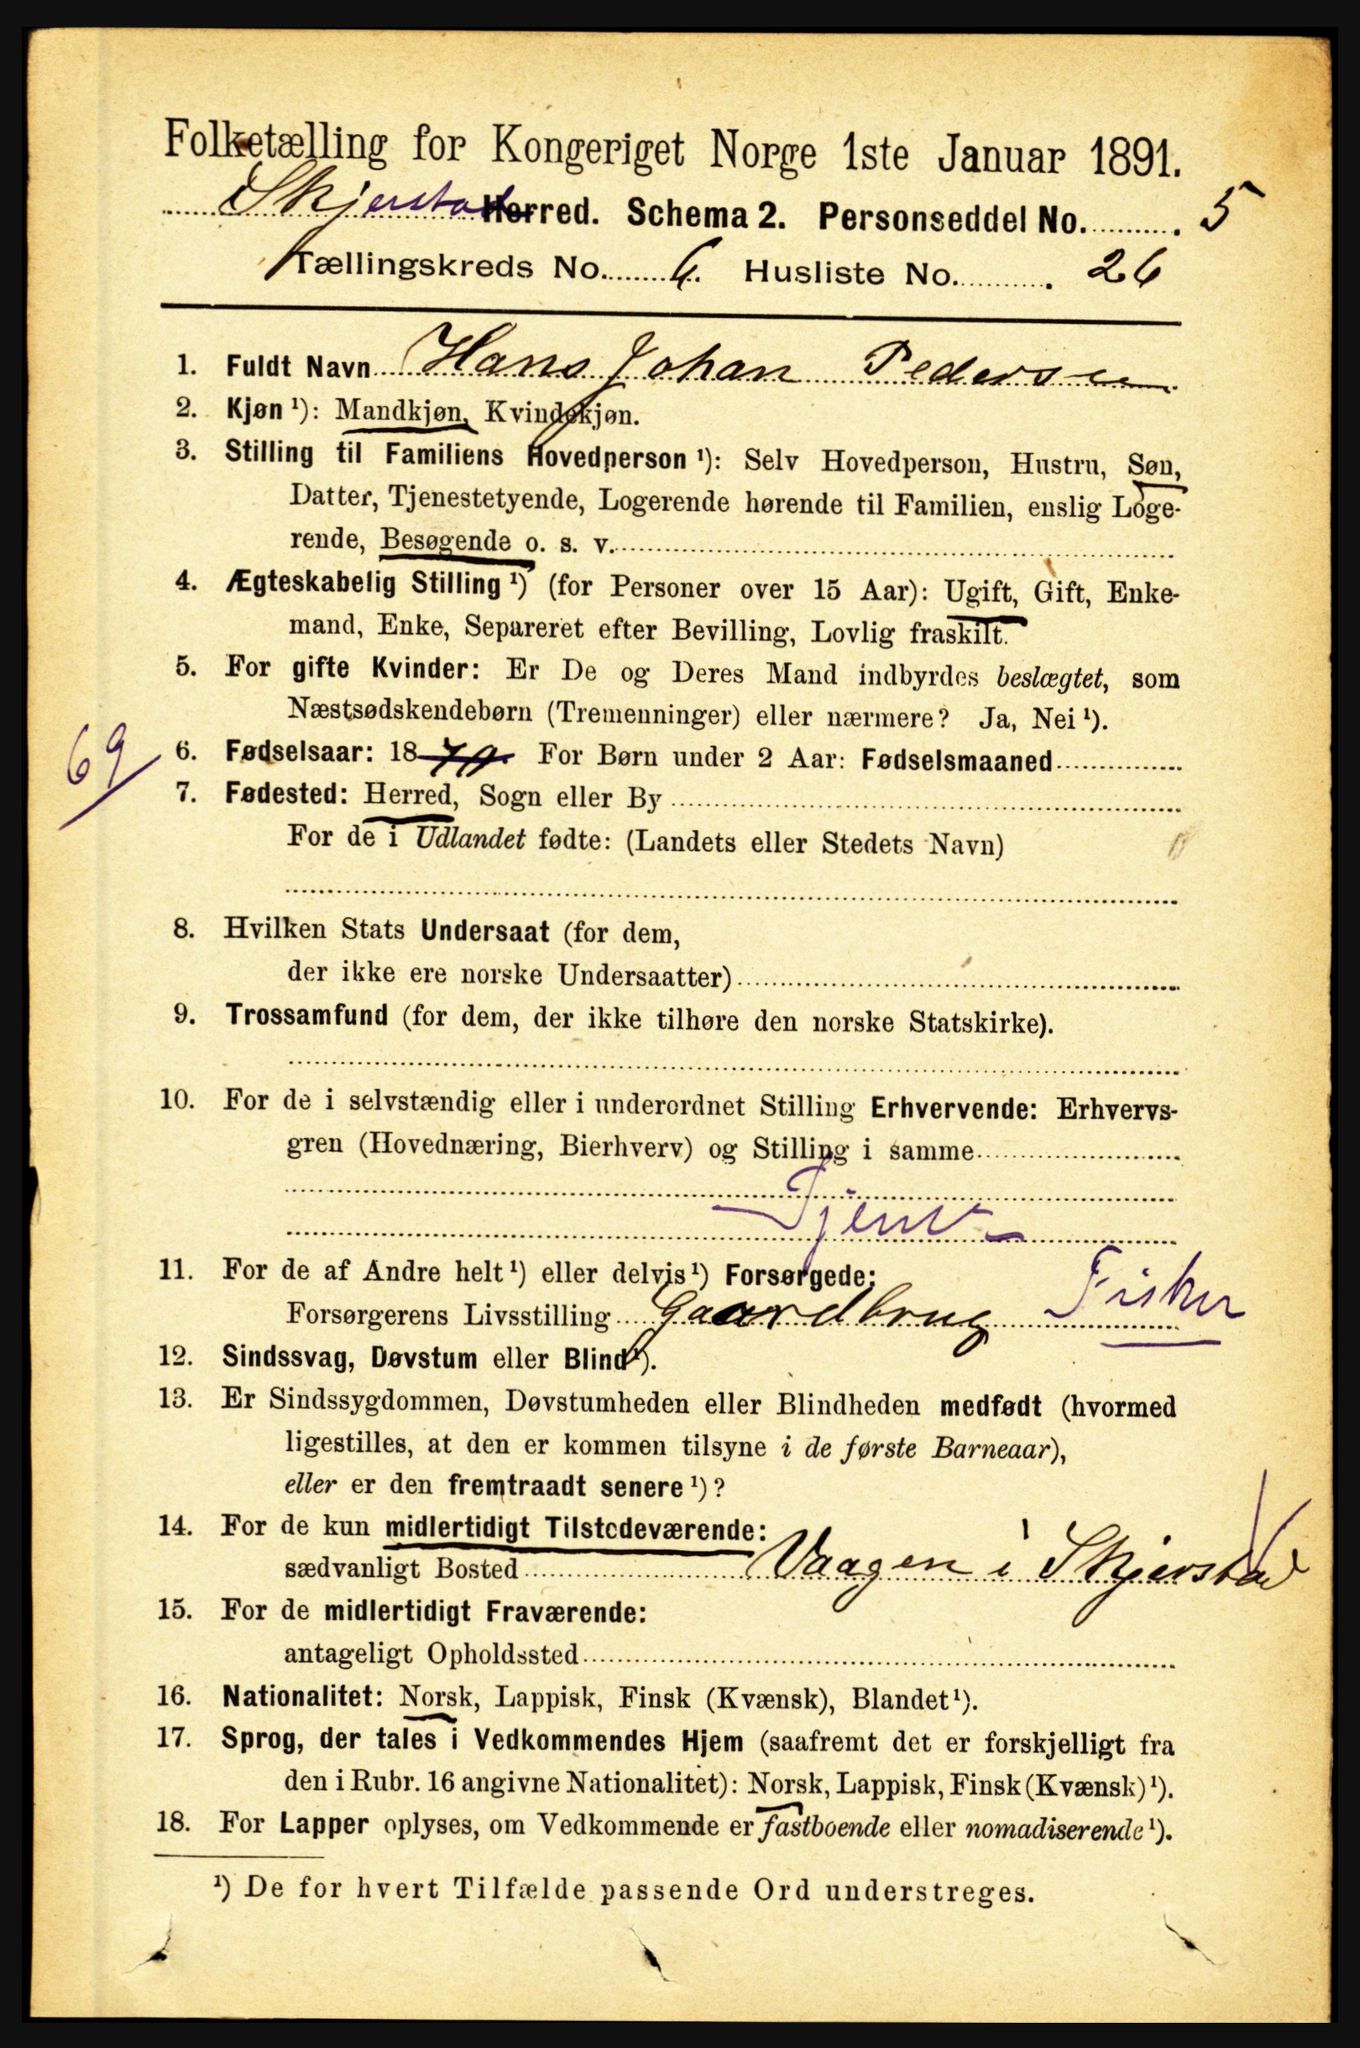 Folketælling for Kongeriget Norge 1ste Januar 1891.
Skjerstad Herred. Schema 2. Personseddel No. 5
Tællingskreds No. 6. Husliste No. 26
1. Fuldt Navn Hans Johan Pedersen
2. Kjøn ¹): Mandkjøn, Kvindekjøn.
3. Stilling til Familiens Hovedperson ¹): Selv Hovedperson, Hustru, Søn,
Datter, Tjenestetyende, Logerende hørende til Familien, enslig Loge-
rende, Besøgende o. s. v.
4. Ægteskabelig Stilling ¹) (for Personer over 15 Aar): Ugift, Gift, Enke-
mand, Enke, Separeret efter Bevilling, Lovlig fraskilt.
5. For gifte Kvinder: Er De og Deres Mand indbyrdes beslægtet, som
Næstsødskendebørn (Tremenninger) eller nærmere? Ja, Nei ¹).
69
6. Fødselsaar: 18 For Børn under 2 Aar: Fødselsmaaned
7. Fødested: Herred, Sogn eller By
For de i Udlandet fødte: (Landets eller Stedets Navn)
8. Hvilken Stats Undersaat (for dem,
der ikke ere norske Undersaatter)
9. Trossamfund (for dem, der ikke tilhøre den norske Statskirke).
10. For de i selvstændig eller i underordnet Stilling Erhvervende: Erhvervs-
gren (Hovednæring, Bierhverv) og Stilling i samme
11. For de af Andre helt ¹) eller delvis ¹) Forsørgede:
Forsørgerens Livsstilling Gaardbrug Fisker
12. Sindssvag, Døvstum eller Blind ¹).
13. Er Sindssygdommen, Døvstumheden eller Blindheden medfødt (hvormed
ligestilles, at den er kommen tilsyne i de første Barneaar),
eller er den fremtraadt senere ¹)?
14. For de kun midlertidigt Tilstedeværende:
sædvanligt Bosted Vaagen i Skjerstad
15. For de midlertidigt Fraværende:
antageligt Opholdssted
16. Nationalitet: Norsk, Lappisk, Finsk (Kvænsk), Blandet ¹).
17. Sprog, der tales i Vedkommendes Hjem (saafremt det er forskjelligt fra
den i Rubr. 16 angivne Nationalitet): Norsk, Lappisk, Finsk (Kvænsk) ¹).
18. For Lapper oplyses, om Vedkommende er fastboende eller nomadiserende ¹).
¹) De for hvert Tilfælde passende Ord understreges.